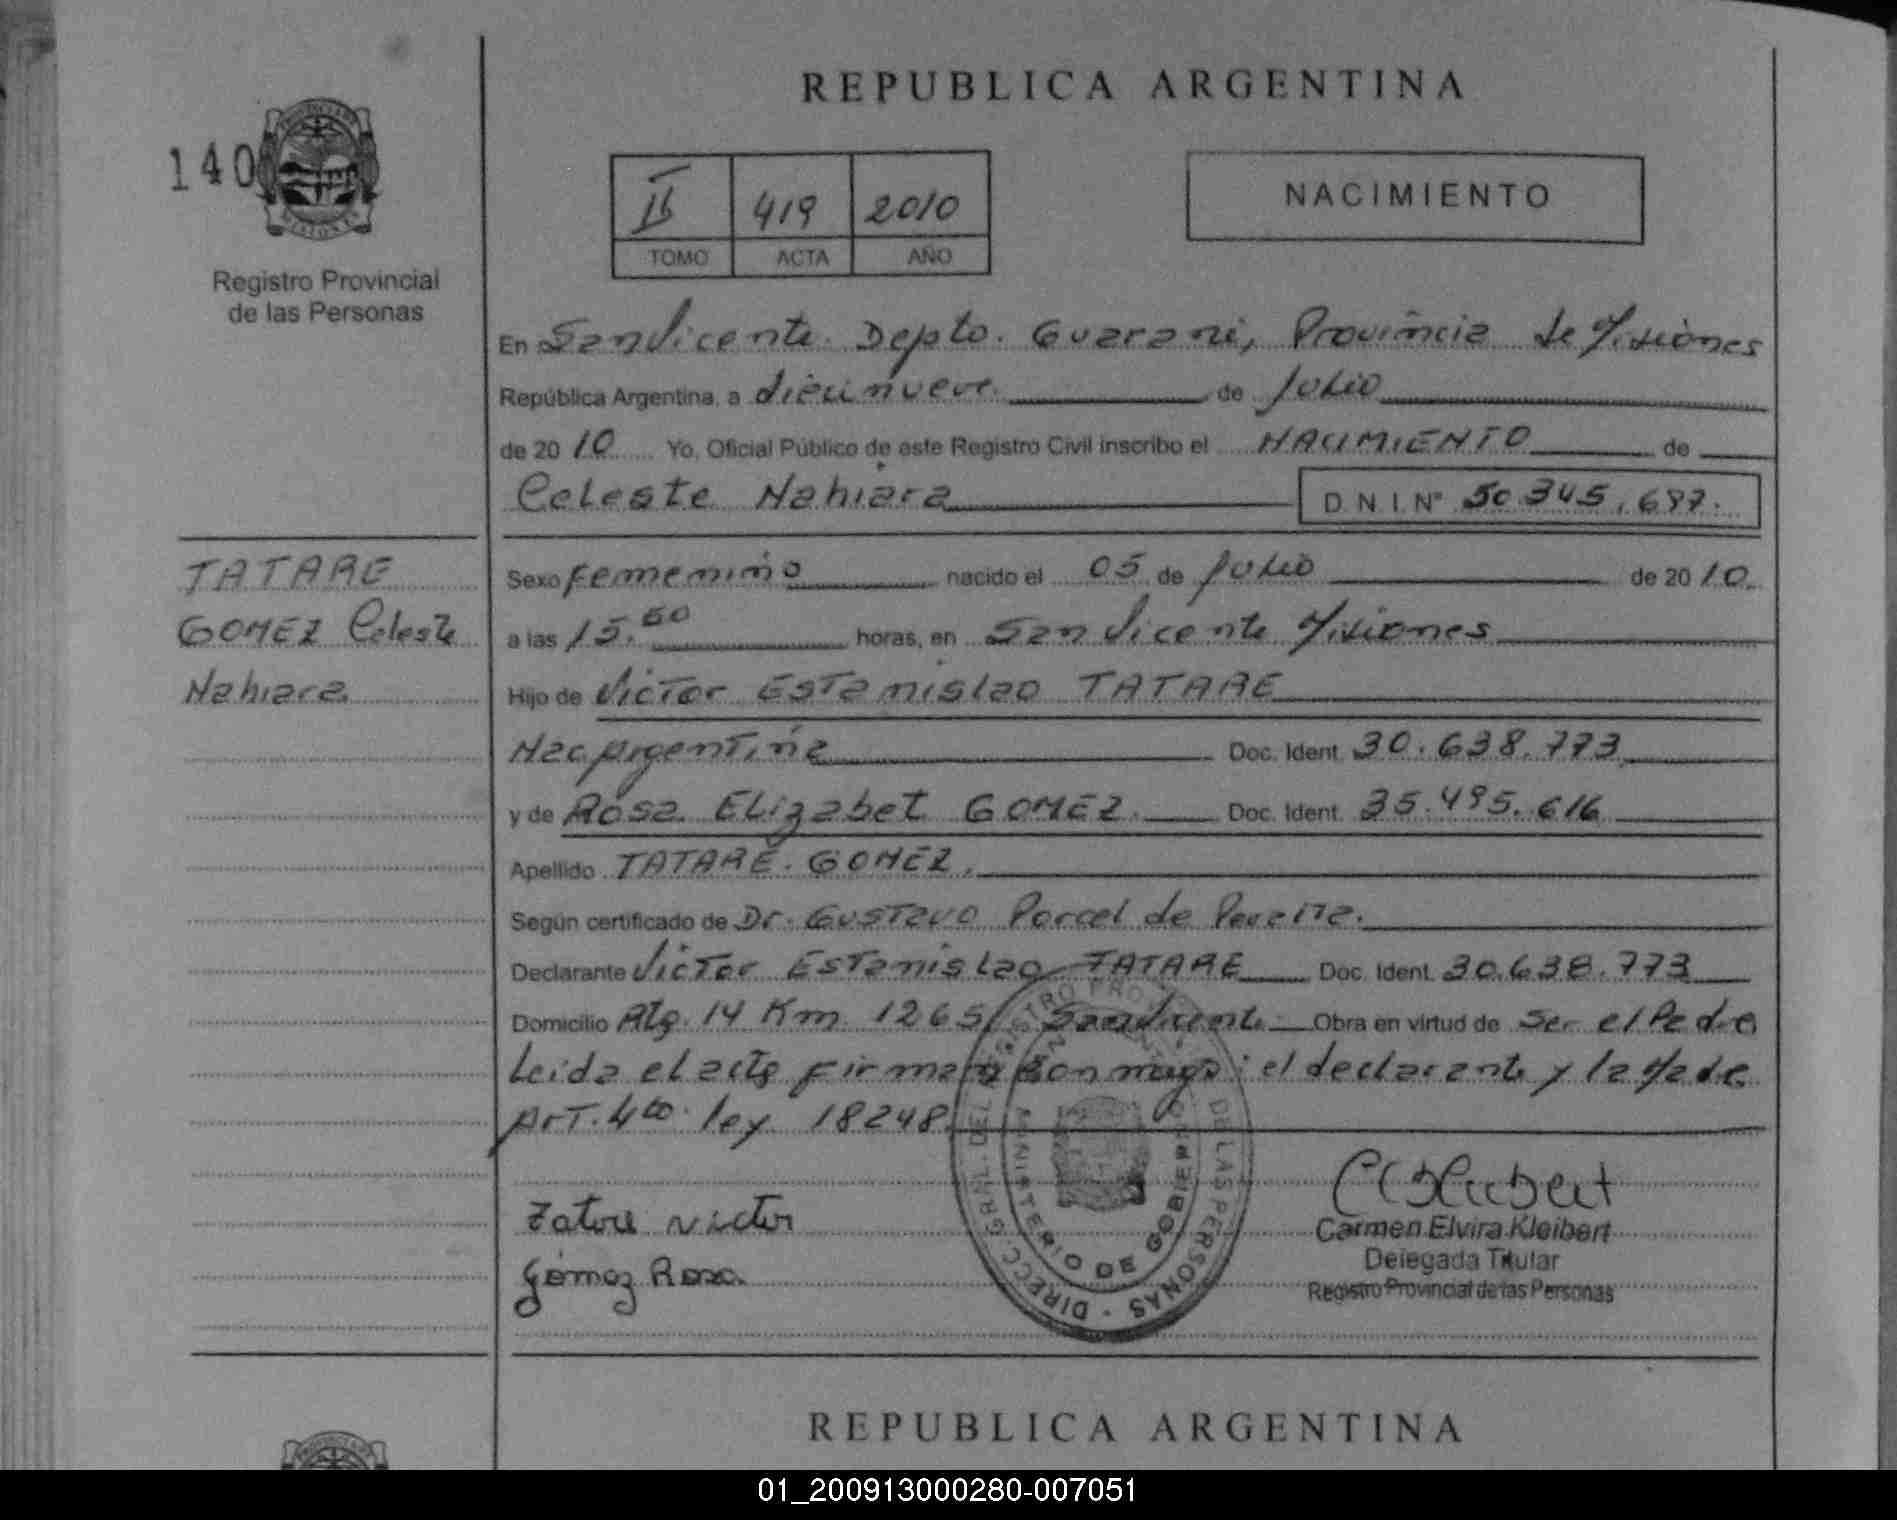 REPUBLICA ARGENTINA
140
II 419 2010
TOMO ACTA AÑO
NACIMIENTO
Registro Provincial
de las Personas
En San Vicente Depto. Guarani, Provincia de Misiones
República Argentina, a diecinueve de Julio
de 2010 Yo, Oficial Público de este Registro Civil inscribo el NACIMIENTO de
Celeste Nahiara D.N.I.Nº 50.345.697.
TATARE
GOMEZ Celeste
Nahiara
Sexo femenino nacido el 05 de Julio de 2010.
a las 15. horas, en San Vicente Misiones
Hijo de Victor Estanislao TATARE
Nac Argentina Doc. Ident. 30.638.773
y de Rosa Elizabet GOMEZ. Doc. Ident. 35.495.616
Apellido TATARE. GOMEZ.
Según certificado de Dr. Gustavo Porcel de Peralta.
Declarante Victor Estanislao TATARE Doc. Ident. 30.638.773
Domicilio 14 Km 1265 San Vicente Obra en virtud de Ser el Padre
Leida el acta firman conmigo: el declarante y la Madre
Art. 4to. ley 18248.
DIRECC. GRAL. DEL REGISTRO PROVINCIAL DE LAS PERSONAS
MINISTERIO DE GOBIERNO
Tatare Victor
Gómez Rosa
Carmen Elvira Kleibert
Delegada Titular
Registro Provincial de las Personas
REPUBLICA ARGENTINA
01_200913000280-007051